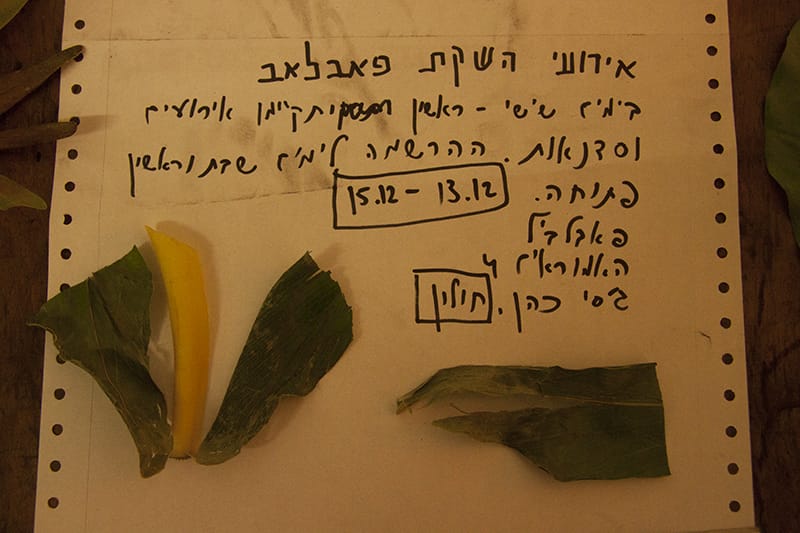 אירועי השקת פאבלאב
בימים שישי - ראשון יתקיימו אירועים
וסדנאות. ההרשמה לימים שבת וראשון
פתוחה. 13.12 – 15.12
פאבלביל
האמוראים 4
ג'סי כהן. חולון